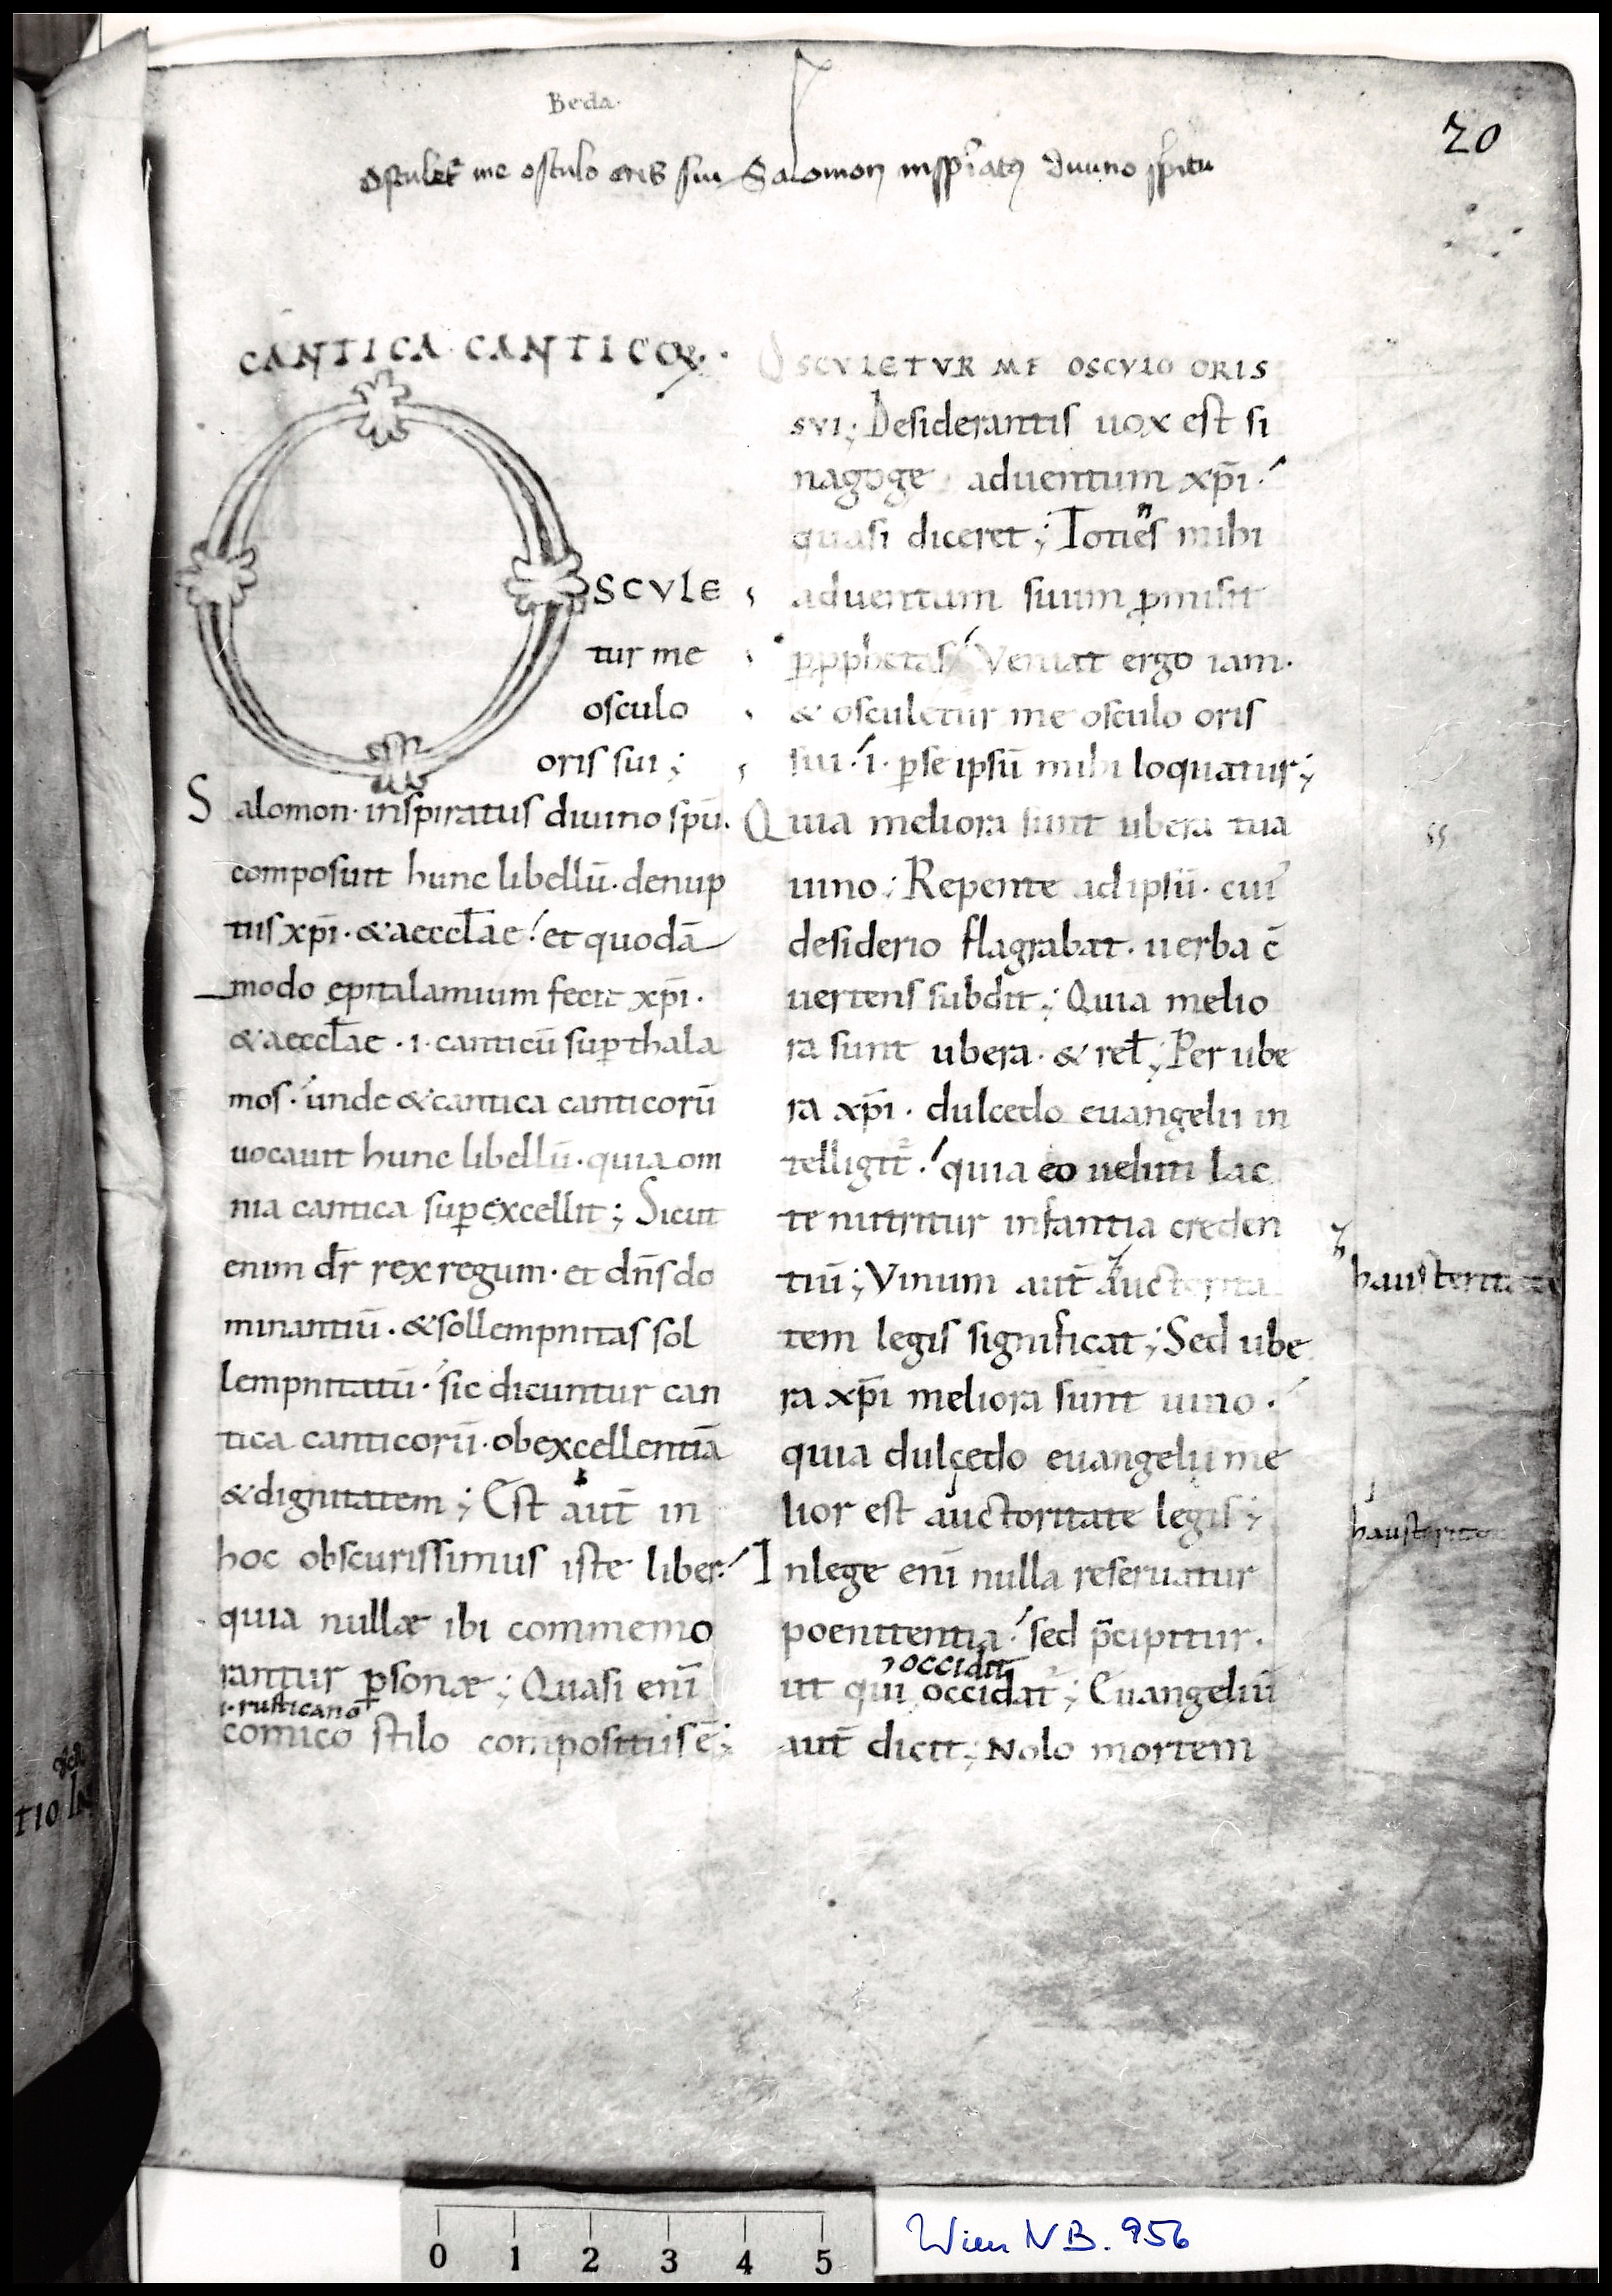 Beda.
20
Osculet̃ me osculo oris sui Salomon inspiratꝰ diuino spiritu
CANTICA CANTICOꝜ.
OSCVLE
tur me
osculo
oris sui;
Salomon· inspiratus diuino spū.
composuit hunc libellū· denup
tiis xp̄i· & aeccl̄ae! et quodā
modo epitalamium fecit xp̄i·
& aeccl̄ae· i· canticū sup̱ thala
mos·' unde & cantica canticorū
uocauit hunc libellū· quia om
nia cantica sup̱excellit; Sicut
enim dr̄ rex regum· et dn̄s do
minantiū· & sollempnitas sol
lempnitatū·' sic dicuntur can
tica canticorū· ob excellentiā
& dignitatem; Est aut̄ in
hoc obscurissimus iste liber!
quia nullæ ibi commemo
rantur ꝑsonæ; Quasi eni̅
i· rusticano
comico stilo compositus ē;
OSCVLETVR ME OSCVLO ORIS
SVI; Desiderantis uox est si
nagoge aduentum xp̄i!
quasi diceret; Totiens mihi
aduentum suum ꝓmisit
ꝑ ꝓphetas!' Veniat ergo iam·
& osculetur me osculo oris
sui!' i· ꝑse ipsū mihi loquatur;
Quia meliora sunt ubera tua
uino; Repente ad ipsū· cui'
desiderio flagrabat· uerba c̄
uertens subdit; Quia melio
ra sunt ubera· & rel̄; Per ube
ra xp̄i· dulcedo euangelii in
telligit̄!' quia eo ueluti lac
te nutritur infantia creden
tiū; Vinum aut̄ auctorita
tem legis significat; Sed ube
ra xp̄i meliora sunt uino·'
quia dulcedo euangelii me
lior est auctoritate legis;
In lege eni̅ nulla reseruatur
poenitentia·' sed p̄cipitur·
occidit
ut qui occidat; Euangeliū
aut̄ dicit; Nolo mortem
hausterita
hausterita
TIO
0 1 2 3 4 5
Wien NB. 956